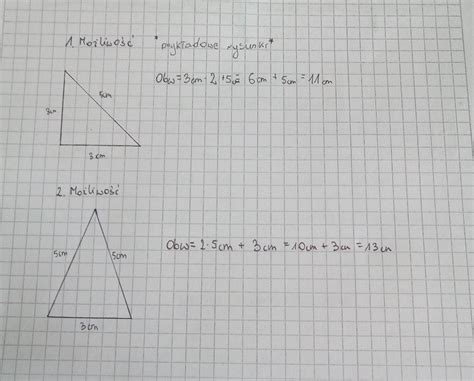 1. Możliwość *przykładowe rysunki*
Obw = 3cm · 2 + 5cm = 6cm + 5cm = 11cm
3cm
5cm
3cm
2. Możliwość
Obw = 2·5cm + 3cm = 10cm + 3cm = 13cm
5cm
5cm
3cm